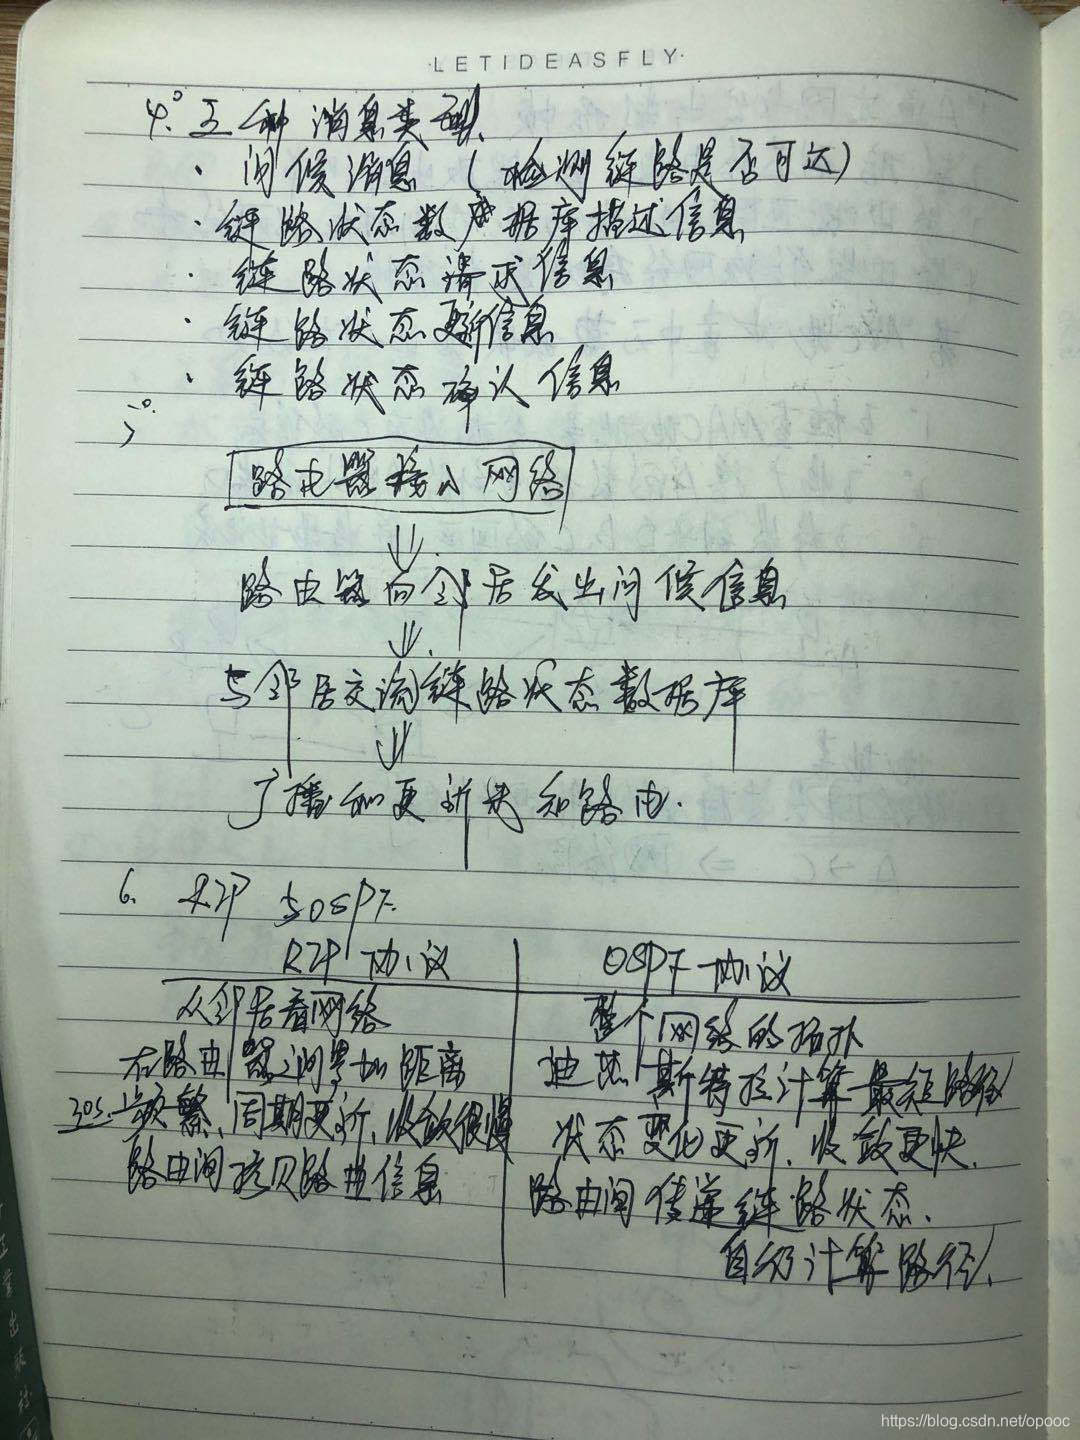 ·LETIDEASFLY·
4.° 五种消息类型
· 问候消息（检测链路是否可达）
· 链路状态数据库描述信息
· 链路状态请求信息
· 链路状态更新信息
· 链路状态确认信息
路由器接入网络
⇓
路由器向邻居发出问候信息
⇓
与邻居交流链路状态数据库
⇓
广播和更新未知路由.
6. RIP 与OSPF.
RIP 协议
从邻居看网络
在路由器之间累加距离
30s. 频繁、周期更新、收敛很慢
路由间拷贝路由信息
OSPF 协议
整个网络的拓扑
迪杰斯特拉计算最短路径
状态变化更新、收敛更快.
路由间传递链路状态、
自行计算路径.
https://blog.csdn.net/opooc